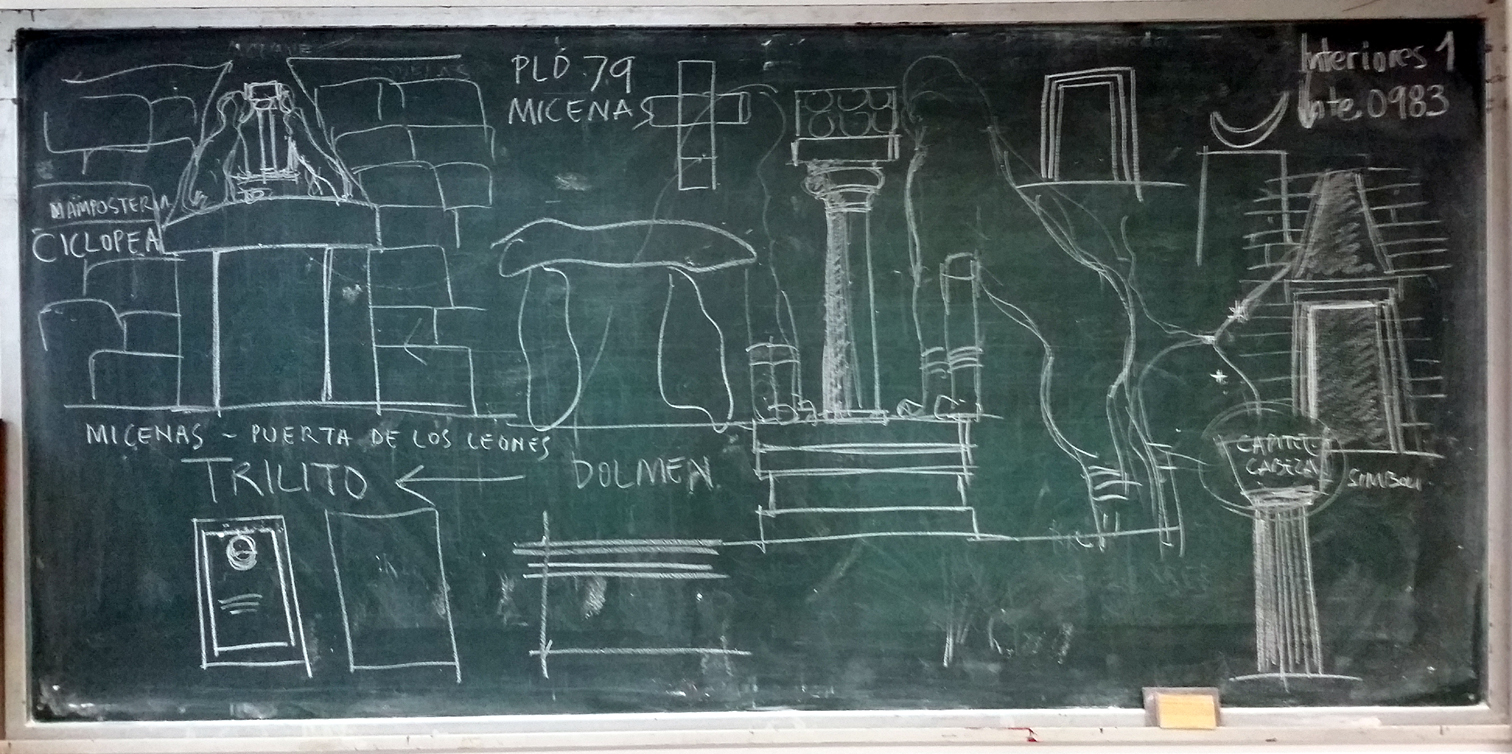 PLÓ.79
MICENAS
Interiores 1
Inte.0983
MAMPOSTERIA
CICLOPEA
MICENAS - PUERTA DE LOS LEONES
TRILITO
DOLMEN
CAPITEL
CABEZA